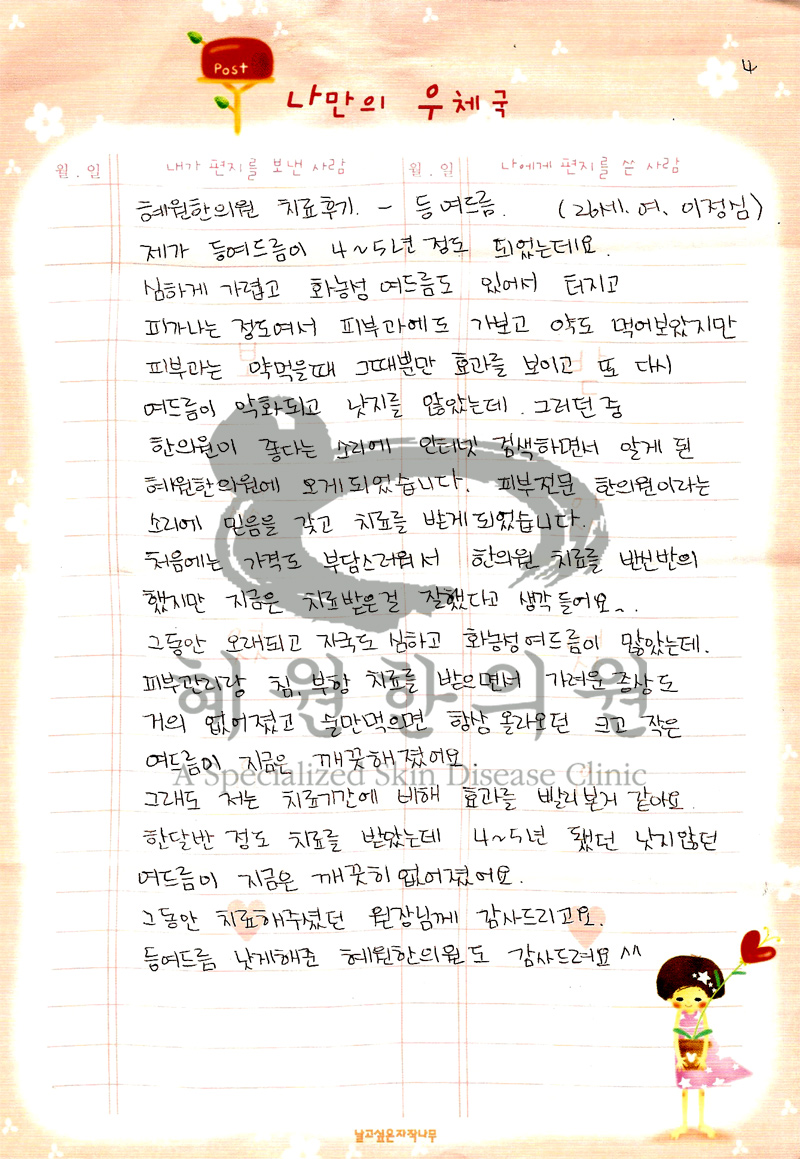 Post
4
나만의 우체국
월.일 내가 편지를 보낸 사람 월.일 나에게 편지를 쓴 사람
혜원한의원 치료후기. - 등여드름. (26세. 여. 이정심)
제가 등여드름이 4~5년 정도 되었는데요.
심하게 가렵고 화농성 여드름도 있어서 터지고
피가나는 정도여서 피부과에도 가보고 약도 먹어보았지만
피부과는 약먹을때 그때뿐만 효과를 보이고 또 다시
여드름이 악화되고 낫지를 않았는데. 그러던 중
한의원이 좋다는 소리에 인터넷 검색하면서 알게 된
혜원한의원에 오게되었습니다. 피부전문 한의원이라는
소리에 믿음을 갖고 치료를 받게되었습니다.
처음에는 가격도 부담스러워서 한의원 치료를 반신반의
했지만 지금은 치료받은걸 잘했다고 생각들어요~.
그동안 오래되고 자국도 심하고 화농성여드름이 많았는데.
피부관리랑 침.부항 치료를 받으면서 가려운증상도
거의 없어졌고 술만먹으면 항상 올라오던 크고 작은
여드름이 지금은 깨끗해졌어요.
그래도 저는 치료기간에 비해 효과를 빨리본거 같아요.
한달반 정도 치료를 받았는데 4~5년 됐던 낫지않던
여드름이 지금은 깨끗히없어졌어요.
그동안 치료해주셨던 원장님께 감사드리고요.
등여드름 낫게해준 혜원한의원도 감사드려요^^
혜원한의원
A Specialized Skin Disease Clinic
날고싶은자작나무